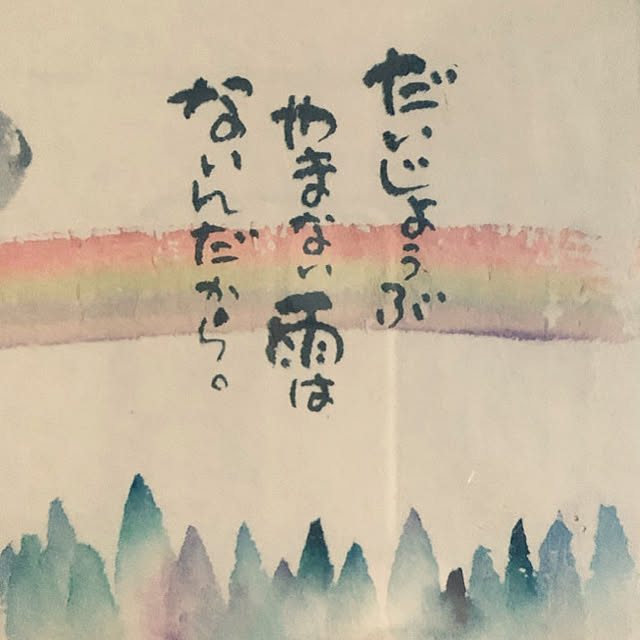 だいじょうぶ
やまない雨は
ないんだから。